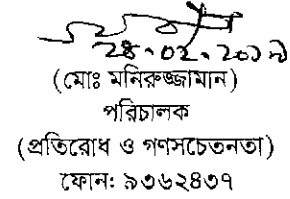 28.02.2017
(মোঃ মনিরুজ্জামান)
পরিচালক
(প্রতিরোধ ও গণসচেতনতা)
ফোন: ৯৩৬২৪৩৭